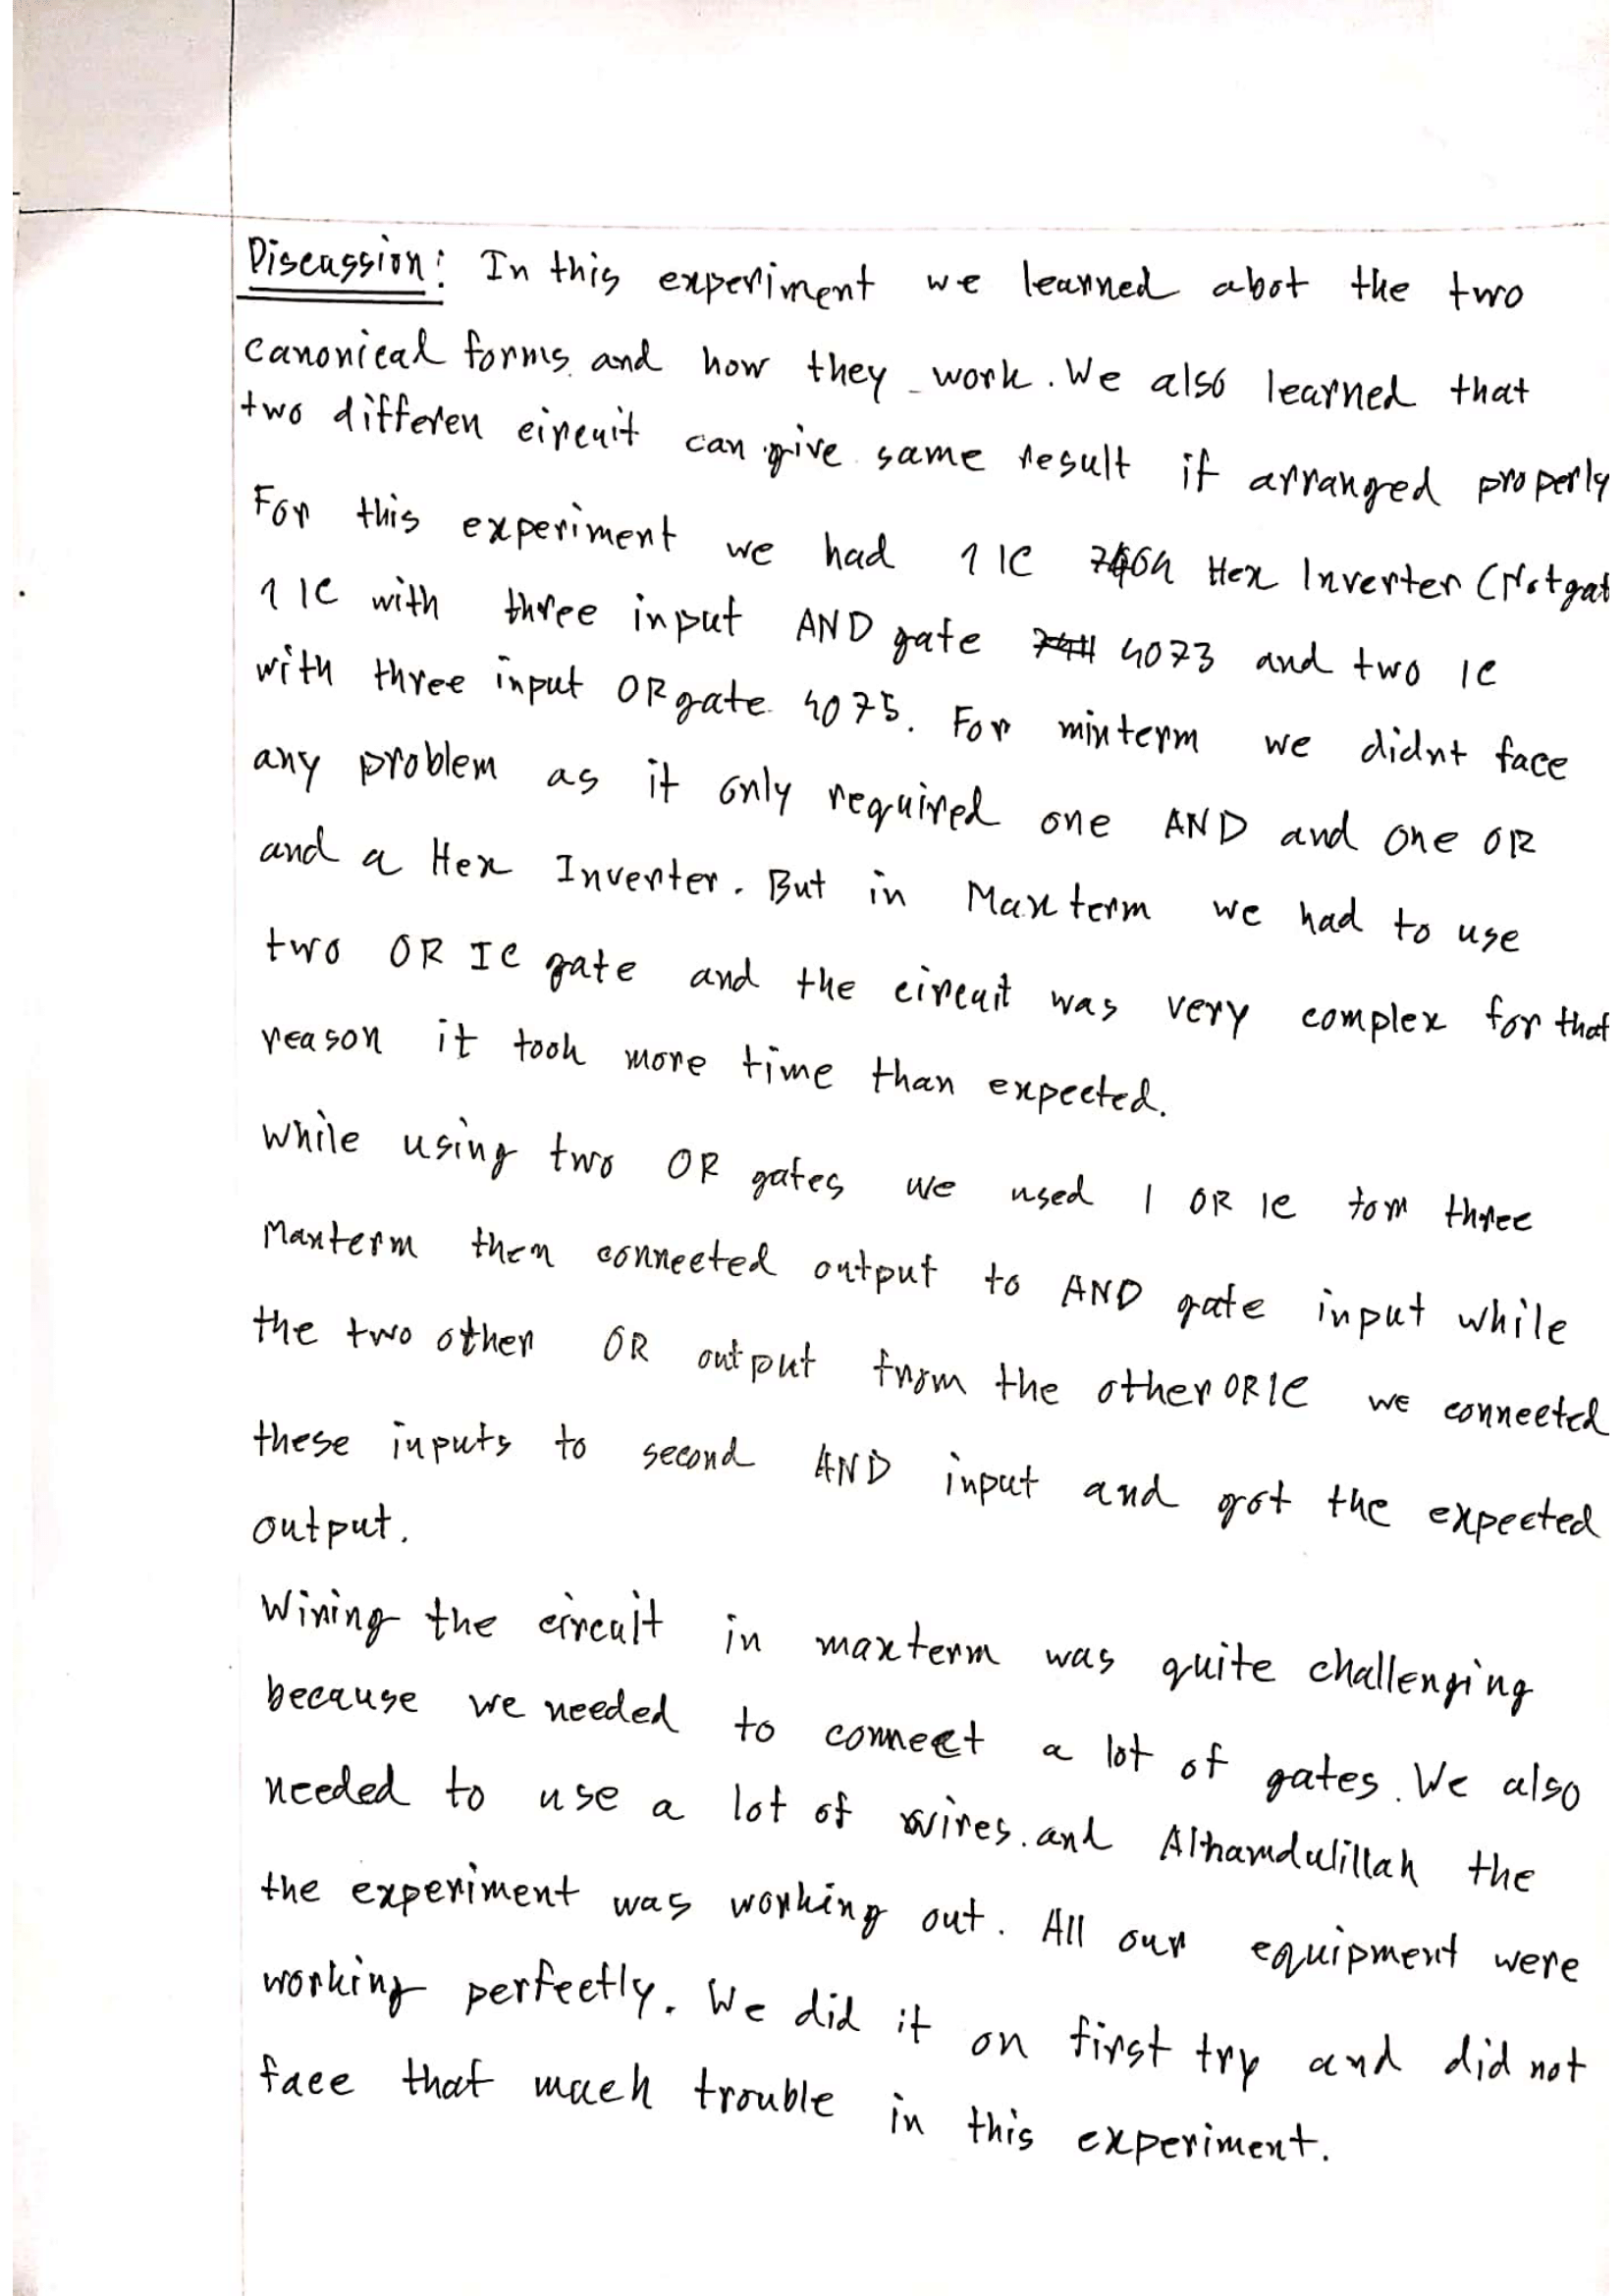 Discussion: In this experiment we learned abot the two
canonical forms and how they work. We also learned that
two differen circuit can give same result if arranged properly
For this experiment we had 1 IC 7404 Hex Inverter (Notgat
1 IC with three input AND gate 4073 and two IC
with three input OR gate 4075. For minterm we didnt face
any problem as it only required one AND and one OR
and a Hex Inverter. But in Maxterm we had to use
two OR IC gate and the circuit was very complex for that
reason it took more time than expected.
While using two OR gates we used 1 OR IC for three
Maxterm then connected output to AND gate input while
the two other OR output from the other OR IC we connected
these inputs to second AND input and got the expected
output.
Wiring the circuit in maxterm was quite challenging
because we needed to connect a lot of gates. We also
needed to use a lot of wires. and Alhamdulillah the
the experiment was working out. All our equipment were
working perfectly. We did it on first try and did not
face that much trouble in this experiment.